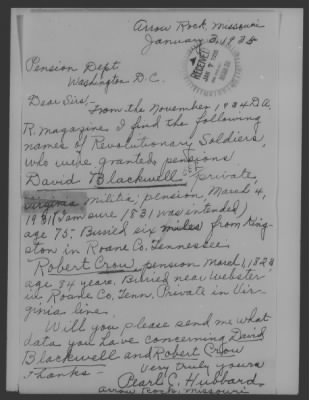 Arrow Rock, Missouri
January 3, 1935
Pension Dept
Washington D.C.
Dear Sirs,-
From the November 1934 D.A.
R. magazine I find the following
names of Revolutionary Soldiers,
who were granted pensions
David Blackwell private,
Virginia militia; pension, March 4,
1931 (I am sure 1831 was intended)
age 75- Buried six miles from King-
ston in Roane Co. Tennessee.
Robert Crow, pension March 1,
age 84 years, Buried near Webster
in Roane Co, Tenn. Private in Vir-
ginia line.
Will you please send me what
data you have concerning David
Blackwell and Robert Crow
Thanks-
Very truly yours
Pearl C. Hubbard
Arrow Rock, Missouri
RECEIVED